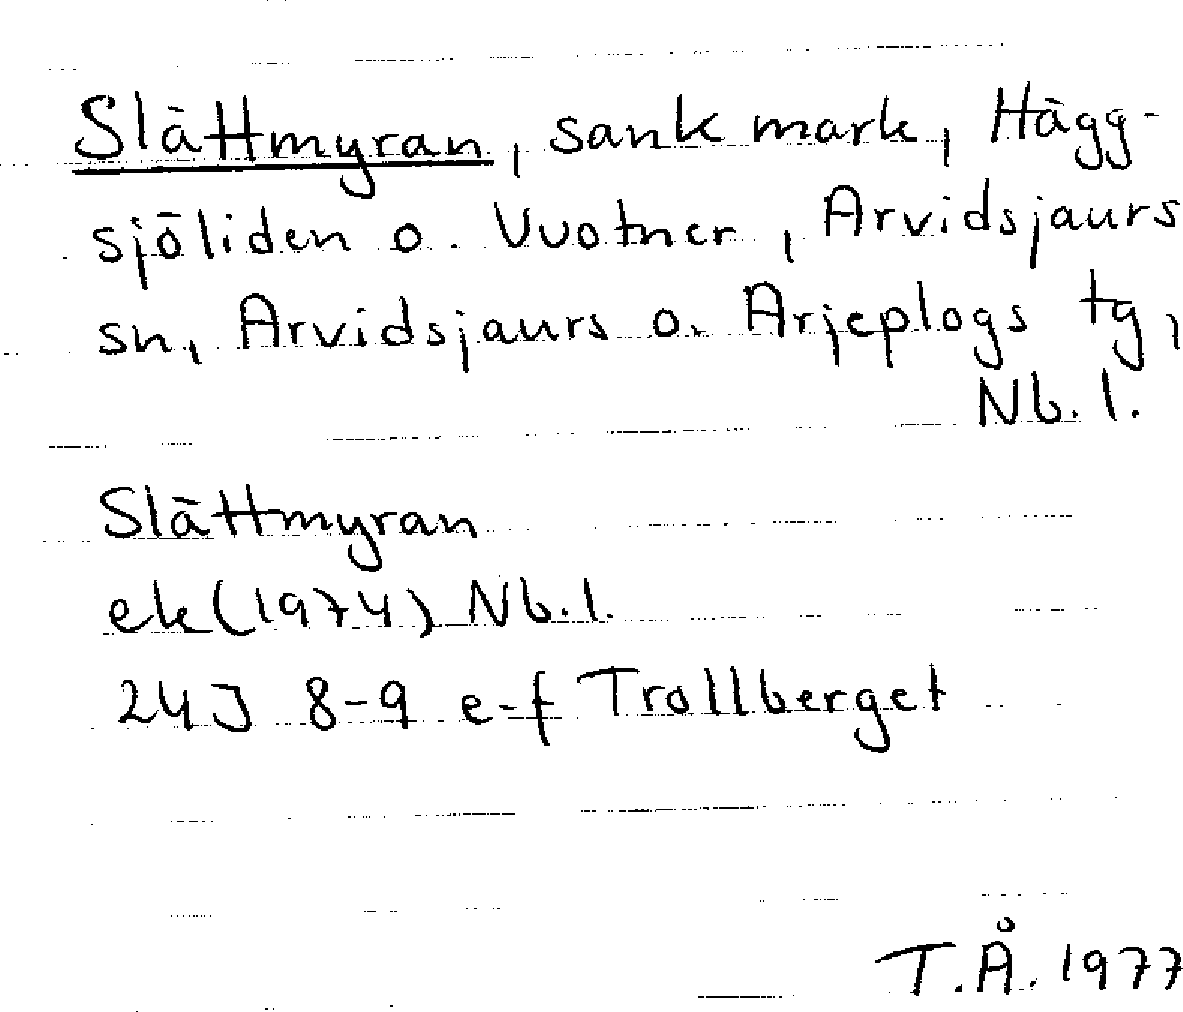 Slåttmyran, sank mark, Hägg-
sjöliden o. Vuotner, Arvidsjaurs
sn, Arvidsjaurs o. Arjeplogs tg,
Nb. l.
Slåttmyran
ek (1974) Nb. l.
24J 8-9 e-f Trollberget
T.Å. 1977